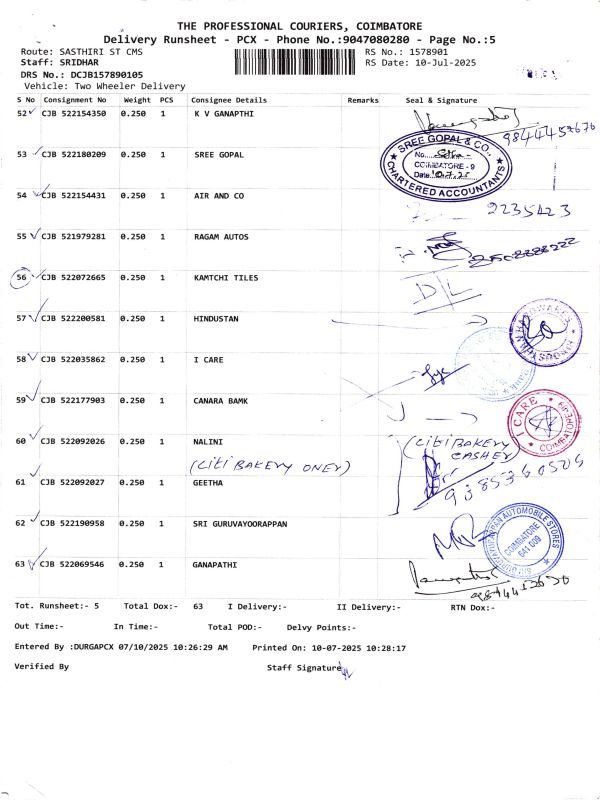 THE PROFESSIONAL COURIERS, COIMBATORE
Delivery Runsheet - PCX - Phone No.:9047080280 - Page No.:5
Route: SASTHIRI ST CMS RS No.: 1578901
Staff: SRIDHAR RS Date: 10-Jul-2025
DRS No.: DCJB157890105
Vehicle: Two Wheeler Delivery
S No Consignment No Weight PCS Consignee Details Remarks Seal & Signature
52 CJB 522154350 0.250 1 K V GANAPTHI
SREE GOPAL & CO.,
53 CJB 522180209 0.250 1 SREE GOPAL
No.
COIMBATORE - 9
Date 10.7.25
CHARTERED ACCOUNTANTS
54 CJB 522154431 0.250 1 AIR AND CO
2235423
55 CJB 521979281 0.250 1 RAGAM AUTOS
56 CJB 522072665 0.250 1 KAMTCHI TILES D/L
57 CJB 522200581 0.250 1 HINDUSTAN
HINDUSTHAN HARDWARES
58 CJB 522035862 0.250 1 I CARE
59 CJB 522177903 0.250 1 CANARA BAMK
I CARE
COIMBATORE
60 CJB 522092026 0.250 1 NALINI (CITI BAKERY
CASHER)
(CITI BAKERY ONEY)
61 CJB 522092027 0.250 1 GEETHA 9385360505
62 CJB 522190958 0.250 1 SRI GURUVAYOORAPPAN
SRI GURUVAYURAPPAN AUTOMOBILE STORES
COIMBATORE
641 009
63 CJB 522069546 0.250 1 GANAPATHI
Tot. Runsheet:- 5 Total Dox:- 63 I Delivery:- II Delivery:- RTN Dox:-
Out Time:- In Time:- Total POD:- Delvy Points:-
Entered By :DURGAPCX 07/10/2025 10:26:29 AM Printed On: 10-07-2025 10:28:17
Verified By Staff Signature